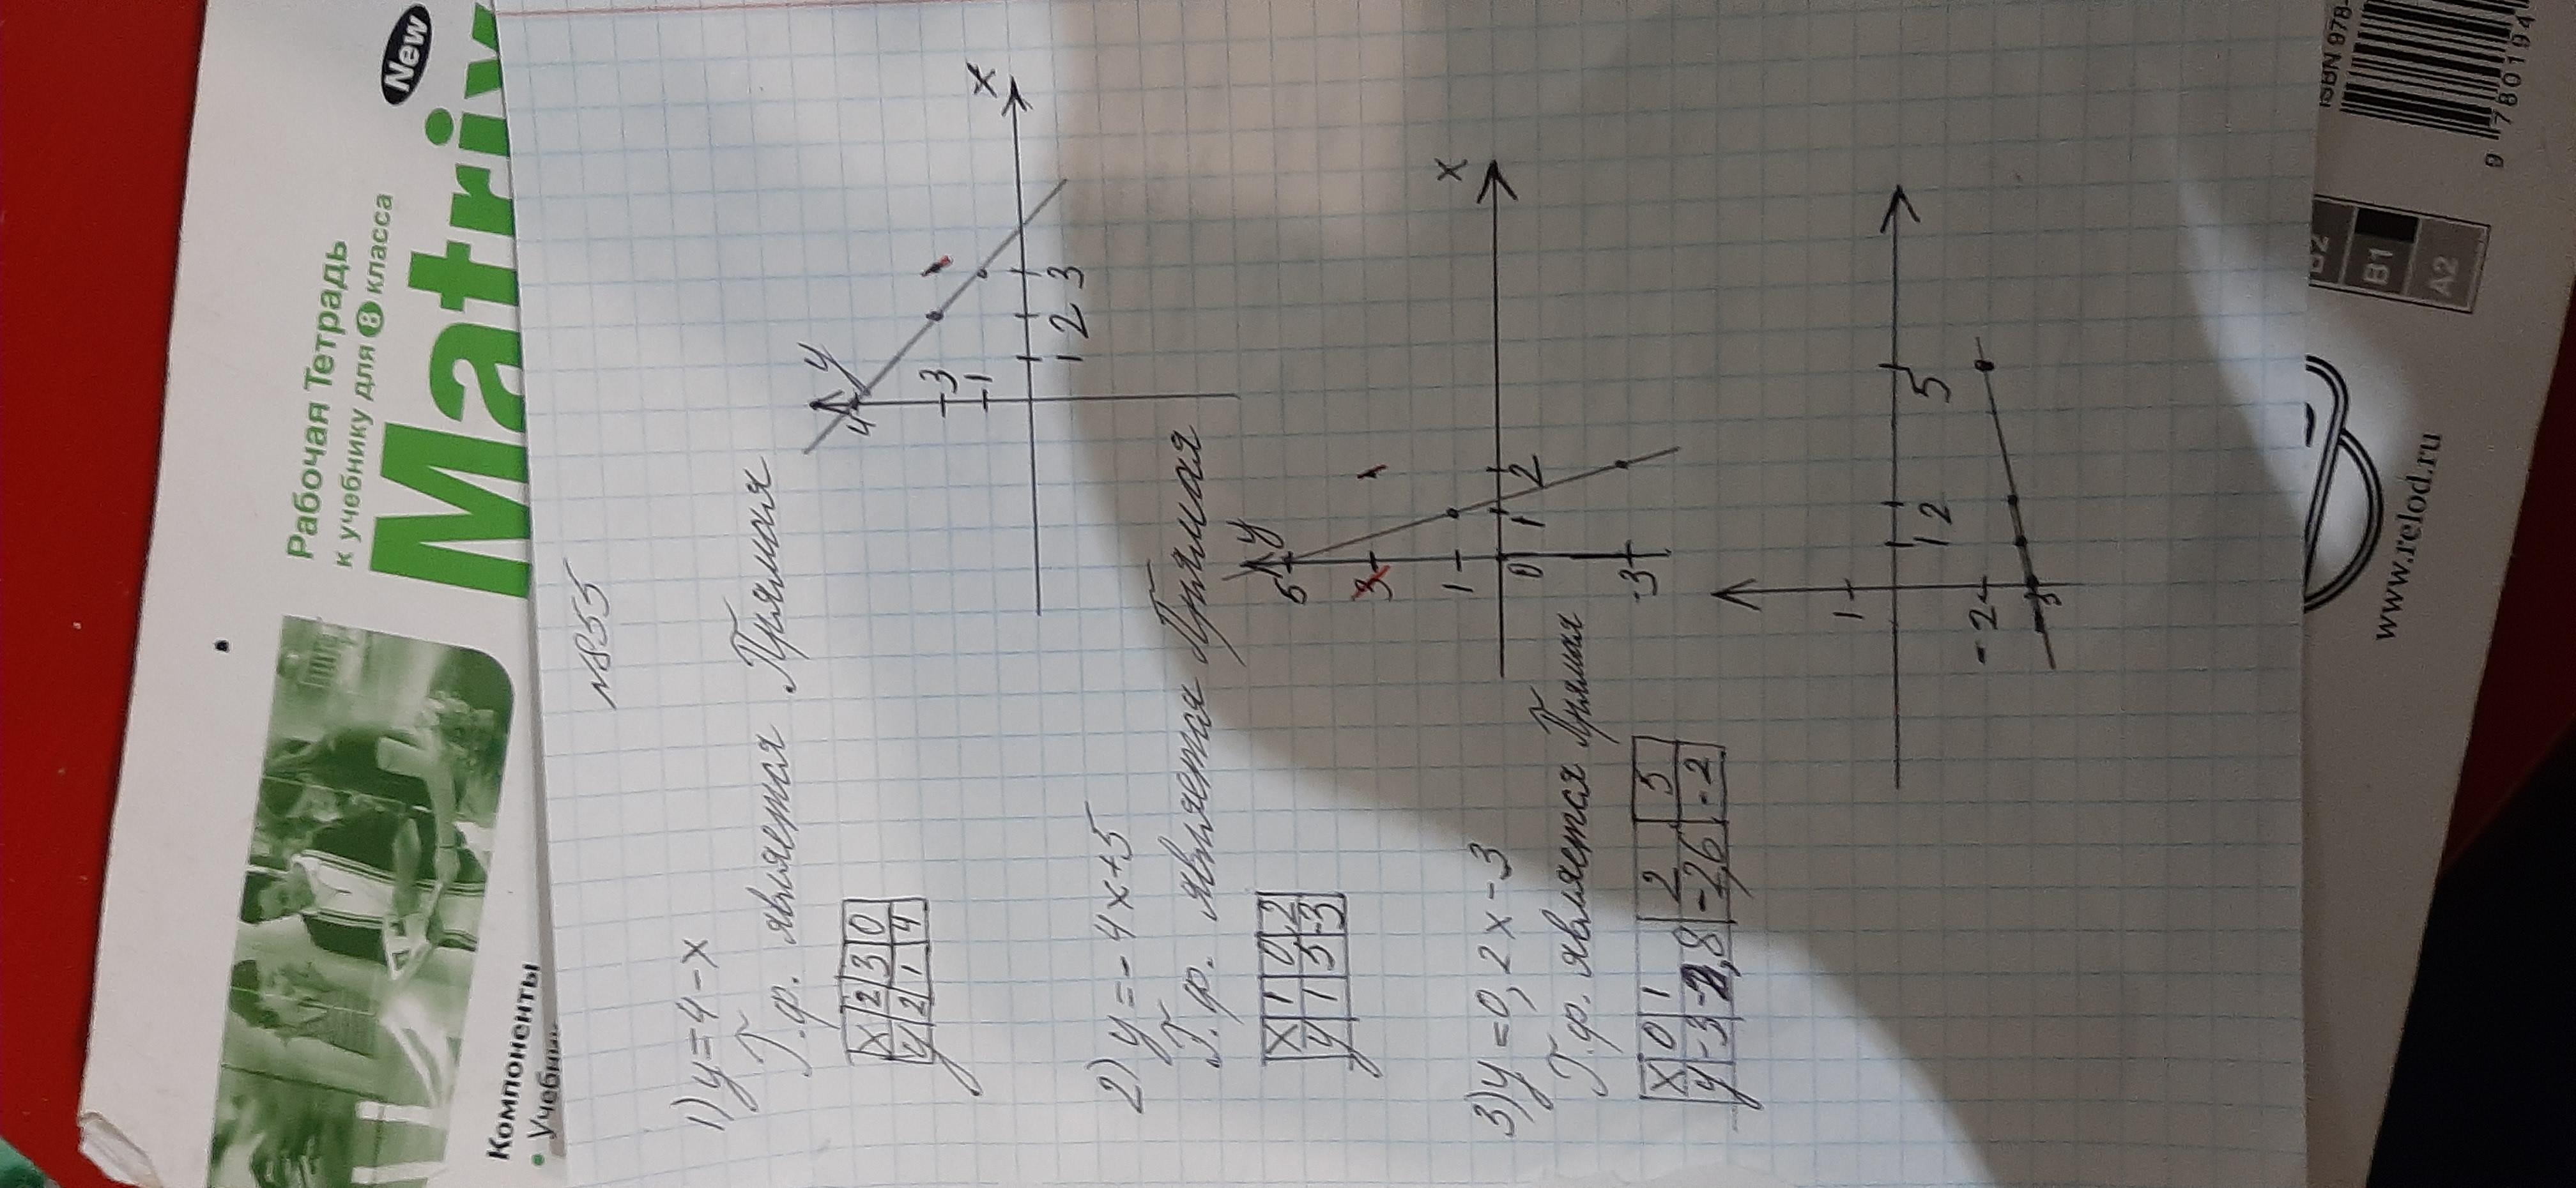 Рабочая Тетрадь
к учебнику для 8 класса
New
Matrix
Компоненты
• Учебник
№855
1) y=4-x
Г.ф. является Прямая
x 2 3 0
y 2 1 4
y
4
3
1
1 2 3
x
2) y=-4x+5
Г.ф. является Прямая
x 1 0 2
y 1 5 -3
y
5
3
1
0 1 2
-3
x
3) y=0,2x-3
Г.ф. является Прямая
x 0 1 2 5
y -3 -2,8 -2,6 -2
1
1 2 5
-2
-3
ISBN 978-
9 780194
B2
B1
A2
www.relod.ru